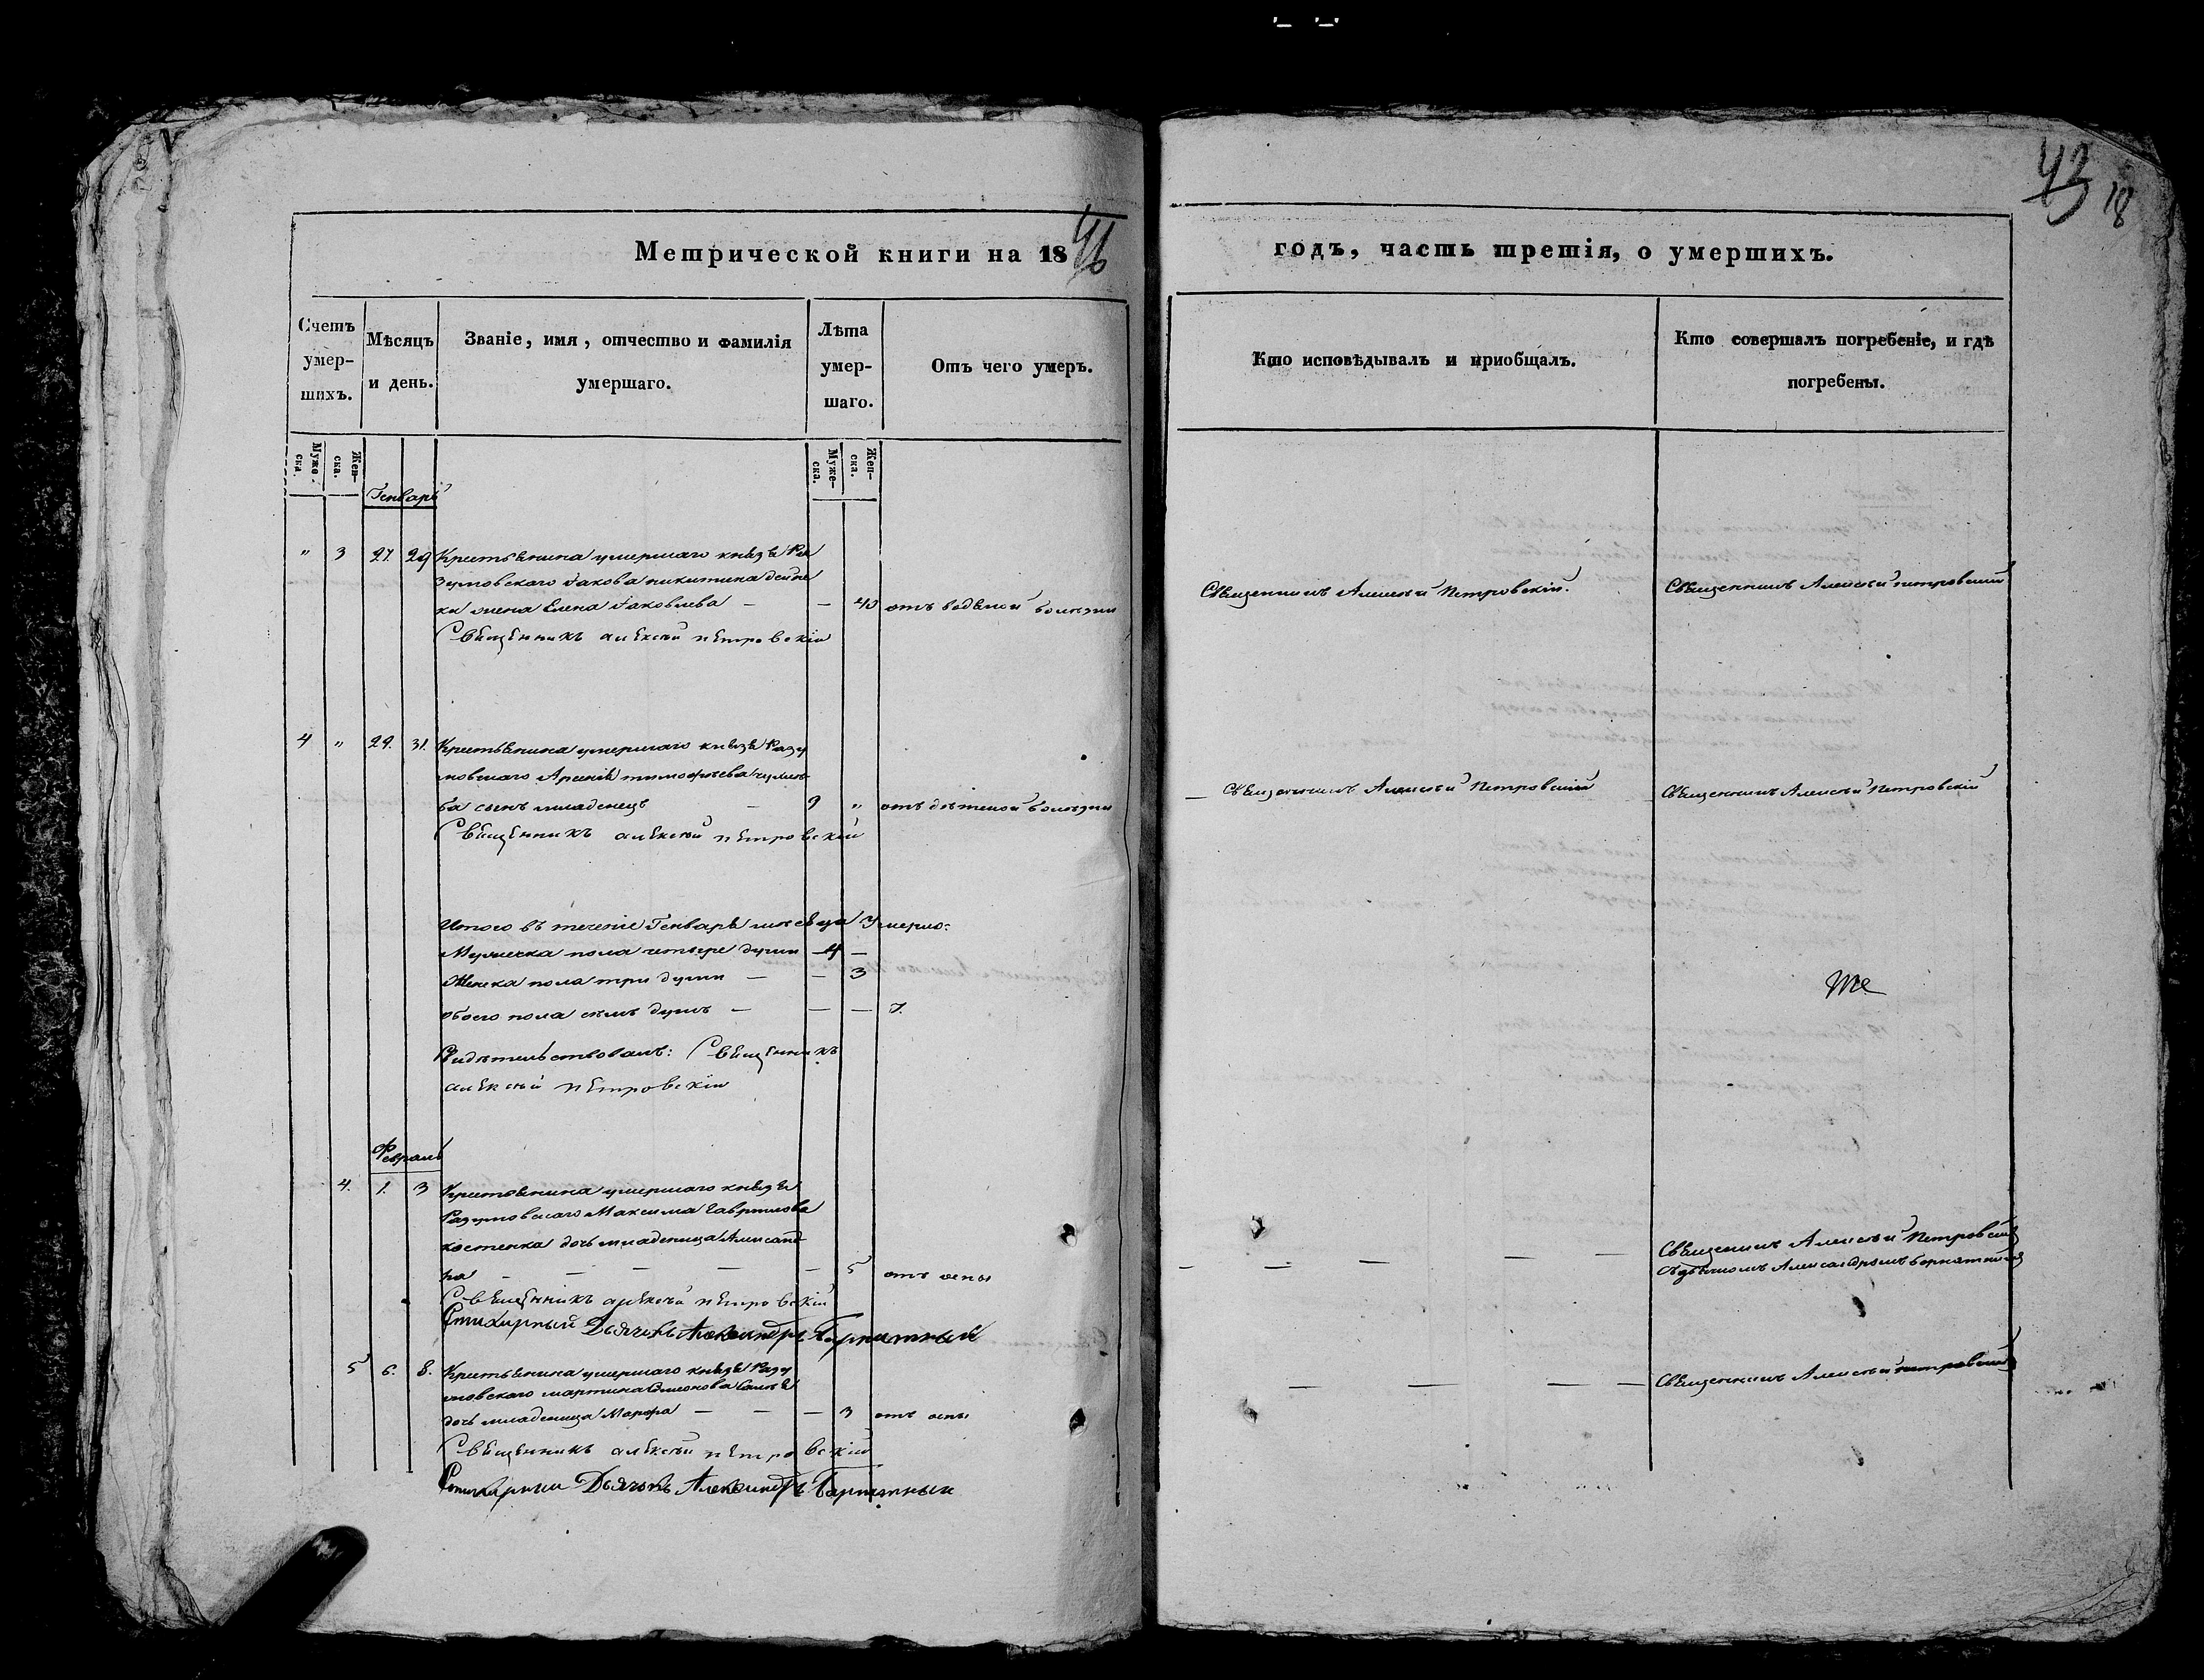 43
18
Метрической книги на 1846
годъ, часть третія, о умершихъ.
Счетъ умер-шихъ.
Мѣсяцъ и день.
Званіе, имя, отчество и фамилія умершаго.
Лѣта умер-шаго.
Отъ чего умеръ.
Кто исповѣдывалъ и приобщалъ.
Кто совершалъ погребеніе, и гдѣ погребены.
Муже-ска.
Жен-ска.
Муже-ска.
Жен-ска.
Генварь
" 3 27. 29 Крестьянина умершаго князя Ра
зумовскаго Іакова никитина
жена Елена Іаковлева — — 40 отъ водяной болѣзни
Священникъ Алексѣй Петровскій.
Священникъ Алексѣй петровскій
Священникъ алексѣй петровскій
4 " 29. 31. Крестьянина умершаго князя Разу
мовскаго Арсенія тимофѣева
ба сынъ младенецъ — 9 " отъ дѣтской болѣзни
— Священникъ Алексѣй Петровскій
Священникъ Алексѣй Петровскій
Священникъ алексѣй петровскій
Итого въ теченіе Генваря месяца Умерло:
Мужеска пола четыре души — 4 —
Женска пола три души — — 3
обоего пола семь душъ — — — 7.
Свидѣтельствовалъ: Священникъ
алексѣй петровскій
Февраль
4. 1. 3 Крестьянина умершаго князя
Разумовскаго Максима Гаврилова
костенка дочь младеница Александ
ра — — — — — 5 отъ оспы
Священникъ Алексѣй Петровскій
съ дьячкомъ Александромъ
Священникъ алексѣй петровскій
Стихарный Дьячекъ Александръ
5 6. 8. Крестьянина умершаго князя Разу
мовскаго мартина
дочь младеница Марфа — — — 3 отъ оспы
— — — — Священникъ Алексѣй петровскій
Священникъ алексѣй петровскій
Стихарный Дьячекъ Александръ